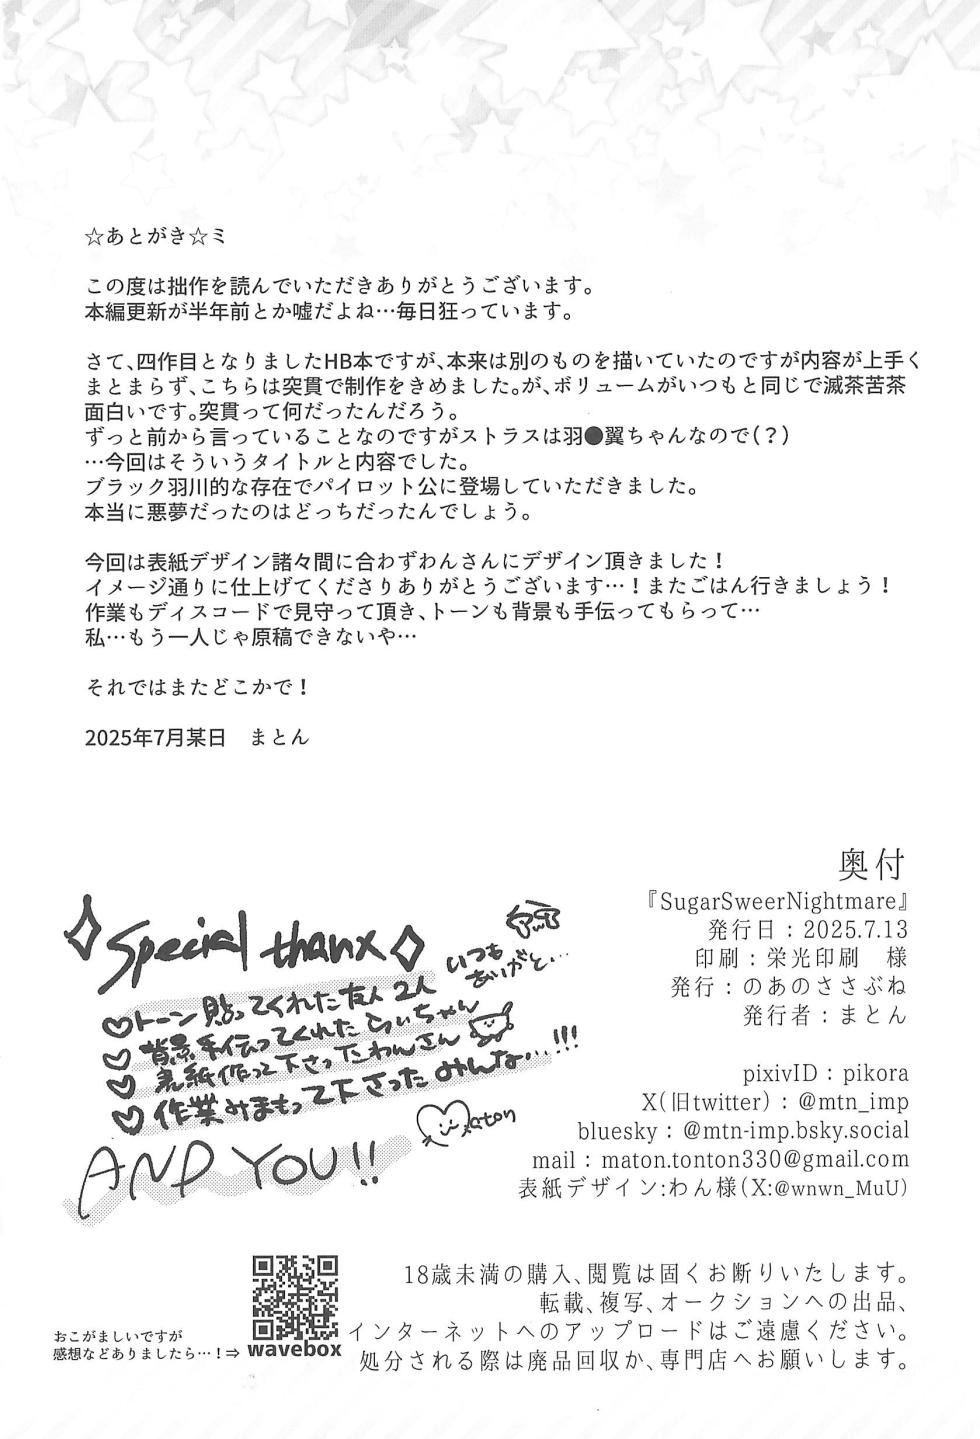 ☆あとがき☆ミ
この度は拙作を読んでいただきありがとうございます。
本編更新が半年前とか嘘だよね…毎日狂っています。
さて、四作目となりましたHB本ですが、本来は別のものを描いていたのですが内容が上手く
まとまらず、こちらは突貫で制作をきめました。が、ボリュームがいつもと同じで滅茶苦茶
面白いです。突貫って何だったんだろう。
ずっと前から言っていることなのですがストラスは羽●翼ちゃんなので(？)
…今回はそういうタイトルと内容でした。
ブラック羽川的な存在でパイロット公に登場していただきました。
本当に悪夢だったのはどっちだったんでしょう。
今回は表紙デザイン諸々間に合わずわんさんにデザイン頂きました！
イメージ通りに仕上げてくださりありがとうございます…！またごはん行きましょう！
作業もディスコードで見守って頂き、トーンも背景も手伝ってもらって…
私…もう一人じゃ原稿できないや…
それではまたどこかで！
2025年7月某日　まとん
Special thanx
いつも
ありがと…
♡トーン貼ってくれた友人2人
♡背景手伝ってくれたらいちゃん
♡表紙作って下さったわんさん
♡作業みまもって下さったみんな…!!!
maton
AND YOU!!
奥付
『SugarSweerNightmare』
発行日：2025.7.13
印刷：栄光印刷　様
発行：のあのささぶね
発行者：まとん
pixivID：pikora
X(旧twitter)：@mtn_imp
bluesky：@mtn-imp.bsky.social
mail：maton.tonton330@gmail.com
表紙デザイン:わん様(X:@wnwn_MuU)
おこがましいですが
感想などありましたら…！⇒
wavebox
18歳未満の購入、閲覧は固くお断りいたします。
転載、複写、オークションへの出品、
インターネットへのアップロードはご遠慮ください。
処分される際は廃品回収か、専門店へお願いします。